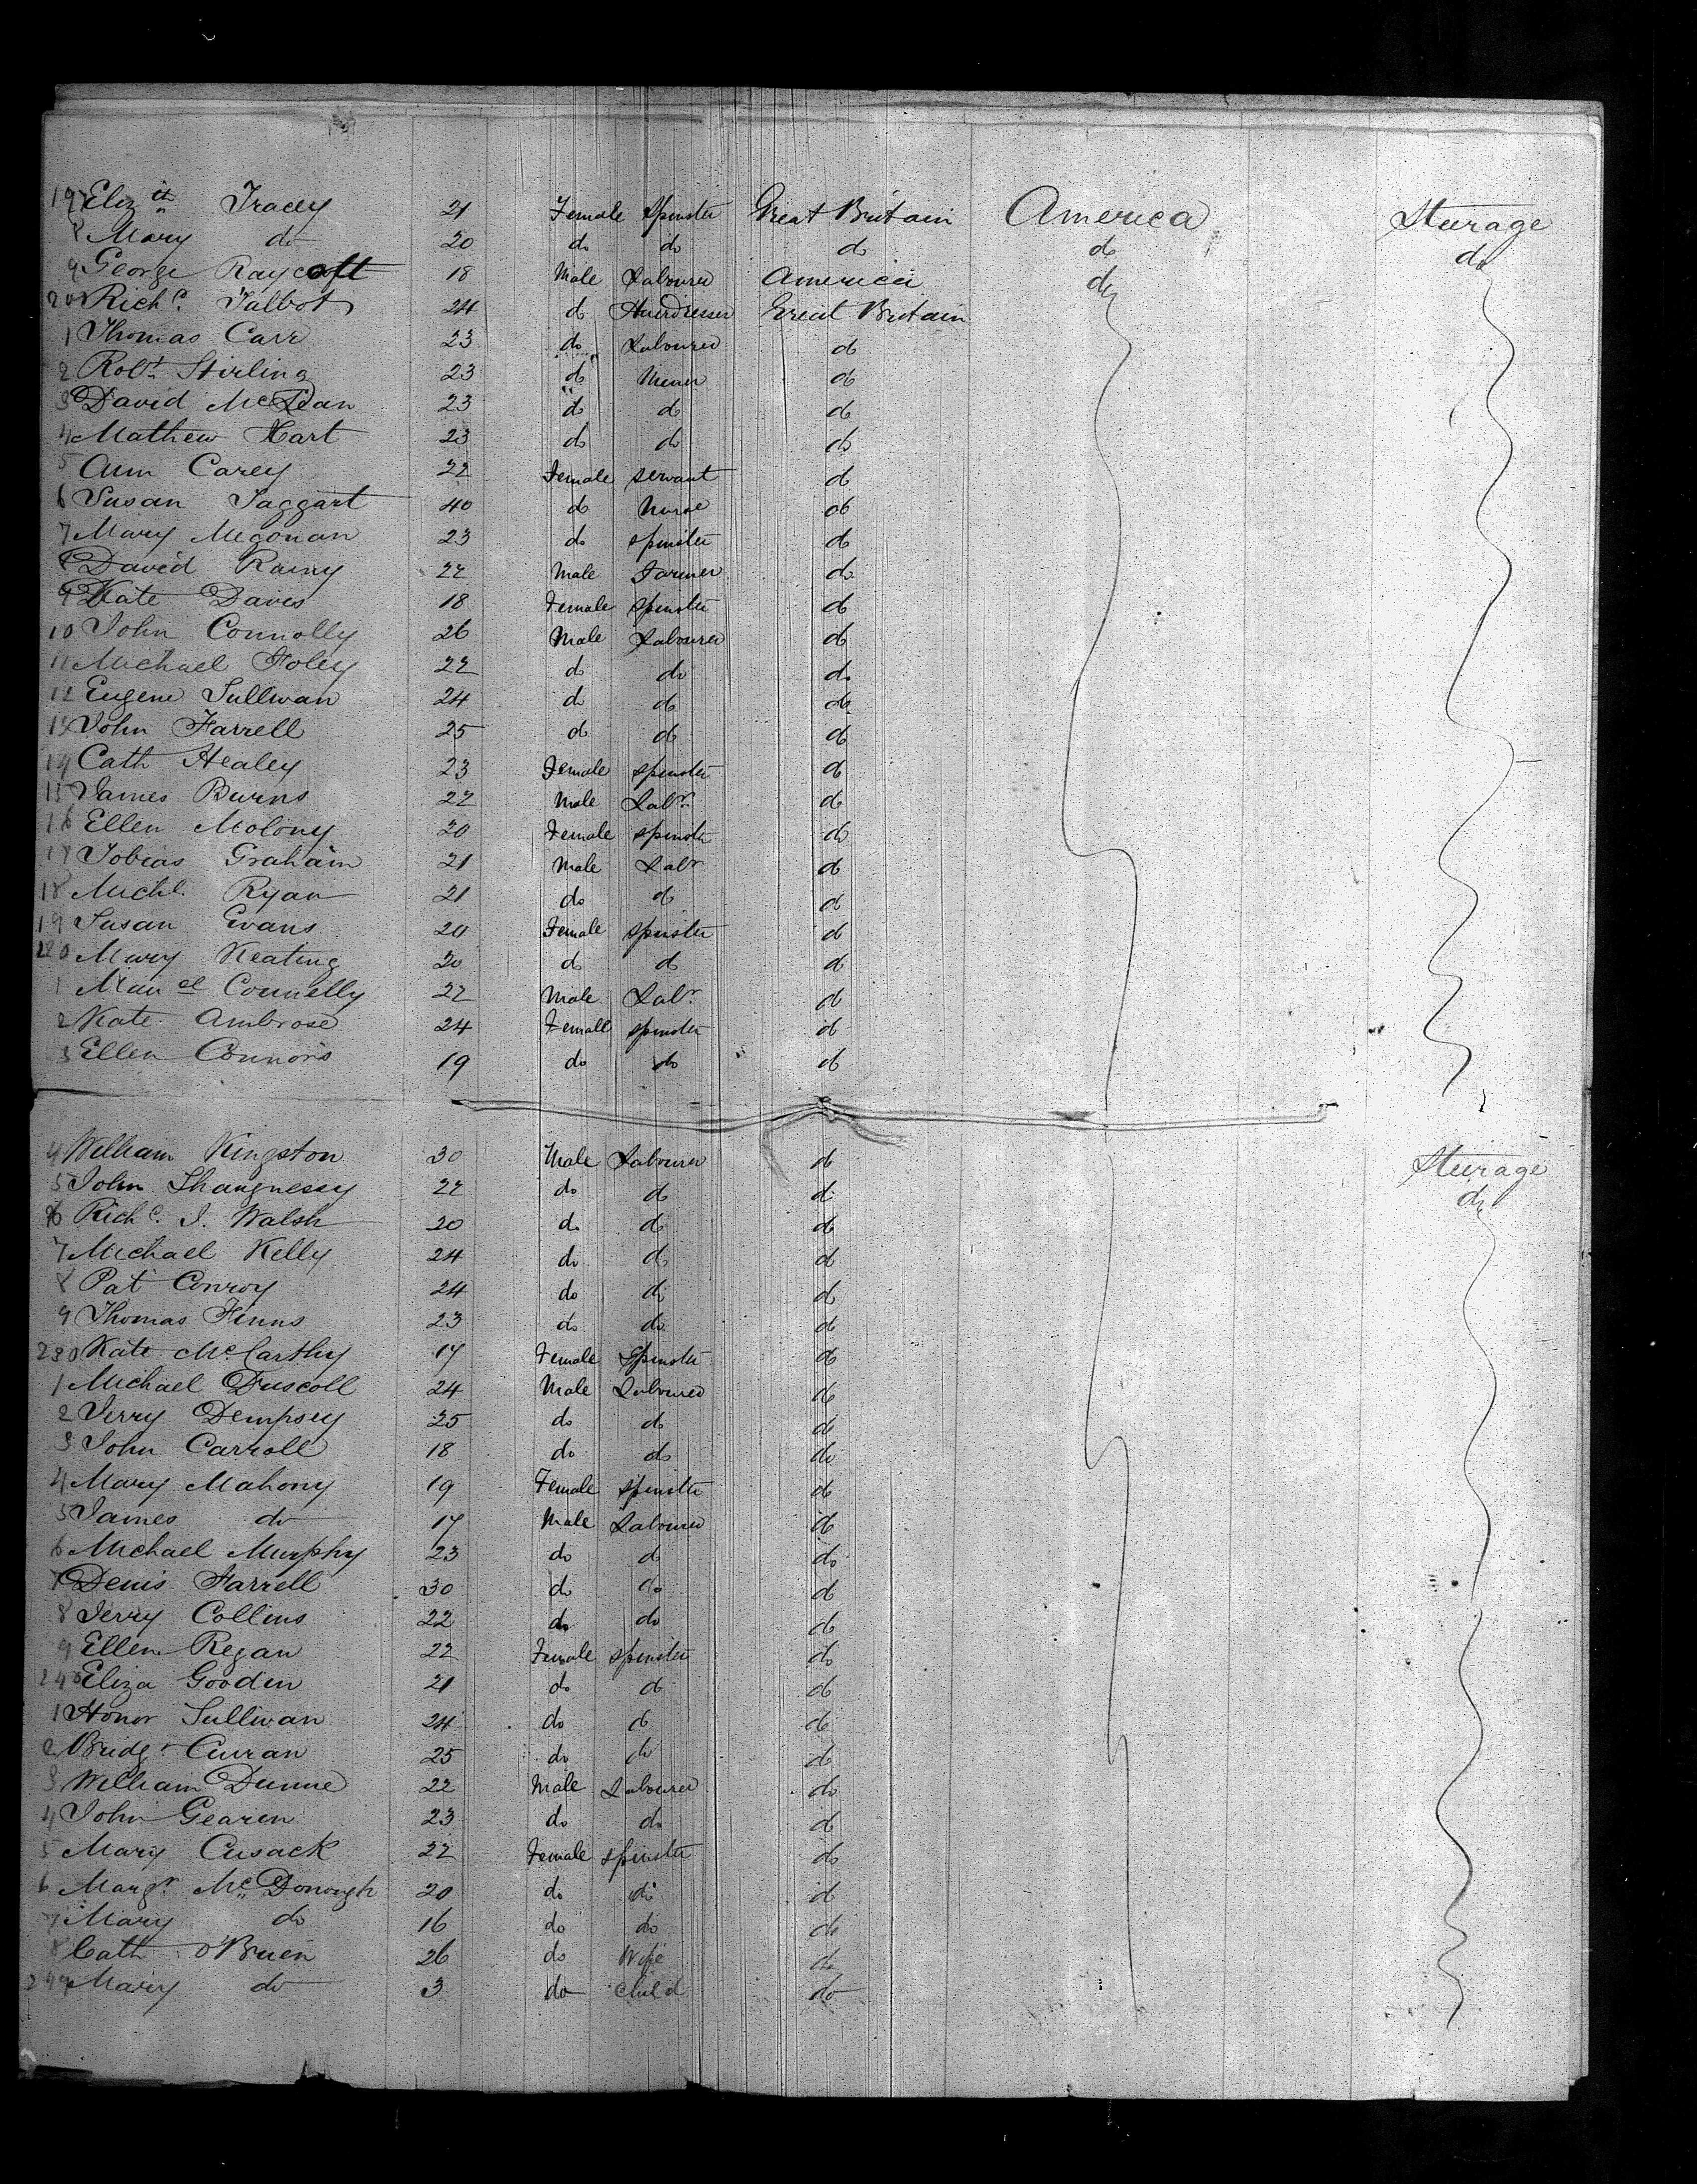 197 Elizth Tracey 21 Female Spinster Great Britain America Steerage
8 Mary do 20 do do do do do
9 George Raycroft 18 Male Labourer America do
200 Richd. Talbot 24 do Hairdresser Great Britain
1 Thomas Carr 23 do Labourer do
2 Robt. Stirling 23 do Miner do
3 David McLean 23 do do do
4 Mathew Hart 23 do do do
5 Ann Carey 22 Female Servant do
6 Susan Taggart 40 do Nurse do
7 Mary Megonan 23 do spinster do
8 David Rainy 22 Male Farmer do
9 Kate Davis 18 Female Spinster do
10 John Connolly 26 Male Labourer do
11 Michael Foley 22 do do do
12 Eugene Sullivan 24 do do do
13 John Farrell 25 do do do
14 Cath Healey 23 Female spinster do
15 James Burns 22 Male Labr. do
16 Ellen Molony 20 Female spinster do
17 Tobias Graham 21 Male Labr do
18 Michl. Ryan 21 do do do
19 Susan Evans 20 Female Spinster do
220 Mary Keating 20 do do do
1 Connelly 22 Male Labr. do
2 Kate Ambrose 24 Female spinster do
3 Ellen Connors 19 do do do
4 William Kingston 30 Male Labourer do Steerage
5 John Shaugnessy 22 do do do do
6 Richd. J. Walsh 20 do do do
7 Michael Kelly 24 do do do
8 Pat Conroy 24 do do do
9 Thomas Finns 23 do do do
230 Kate McCarthy 17 Female Spinster do
1 Michael Driscoll 24 Male Labourer do
2 Jerry Dempsey 25 do do do
3 John Carroll 18 do do do
4 Mary Mahony 19 Female spinster do
5 James do 17 Male Labourer do
6 Michael Murphy 23 do do do
7 Denis Farrell 30 do do do
8 Jerry Collins 22 do do do
9 Ellen Regan 22 Female spinster do
240 Eliza Gooden 21 do do do
1 Honor Sullivan 24 do do do
2 Bridgt Curran 25 do do do
3 William Dunne 22 Male Labourer do
4 John Gearen 23 do do do
5 Mary Cusack 22 Female spinster do
6 Margt. McDonough 20 do do do
7 Mary do 16 do do do
8 Cath O'Brien 26 do Wife do
249 Mary do 3 do Child do